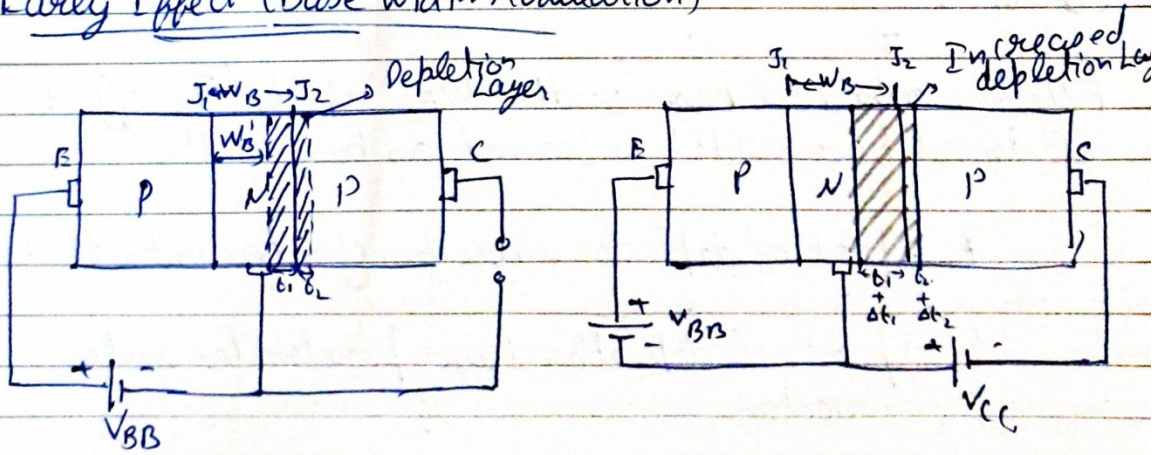 Early Effect (Base Width Modulation)
J₁ W_B J₂ Depletion Layer
W_B'
E P N P C
t₁ t₂
+ -
V_BB
J₁ W_B J₂ Increased depletion Lay
E P N P C
t₁ + Δt₁ t₂ + Δt₂
+ - V_BB
+ -
V_CC